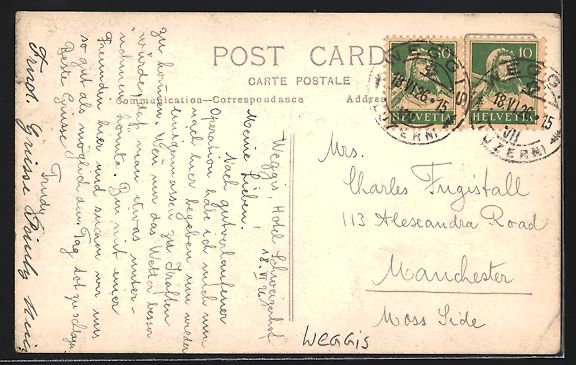 POST CARD
CARTE POSTALE
Communication—Correspondance
Address
10
HELVETIA
10
HELVETIA
WEGGIS
18.VI.26-15
(LUZERN)
WEGGIS
18.VI.26-15
VII
(LUZERN)
Mrs.
Charles Fugistall
113 Alexandra Road
Manchester
Moss Side
WEGGIS
Weggis, Hotel Schweizerhof
18. VI. 26
Meine Lieben!
Nach gutverlaufener
Operation habe ich mich nun
nach hier begeben um wieder
einigermassen zu Kräften
zu kommen. Wenn nur das Wetter besser
würde, dass man etwas unter-
nehmen könnte. Bin mit einer
Freundin hier und suchen wir uns
so gut als möglich den Tag totzuschlagen.
Beste Grüsse
Trudy
Grüsse